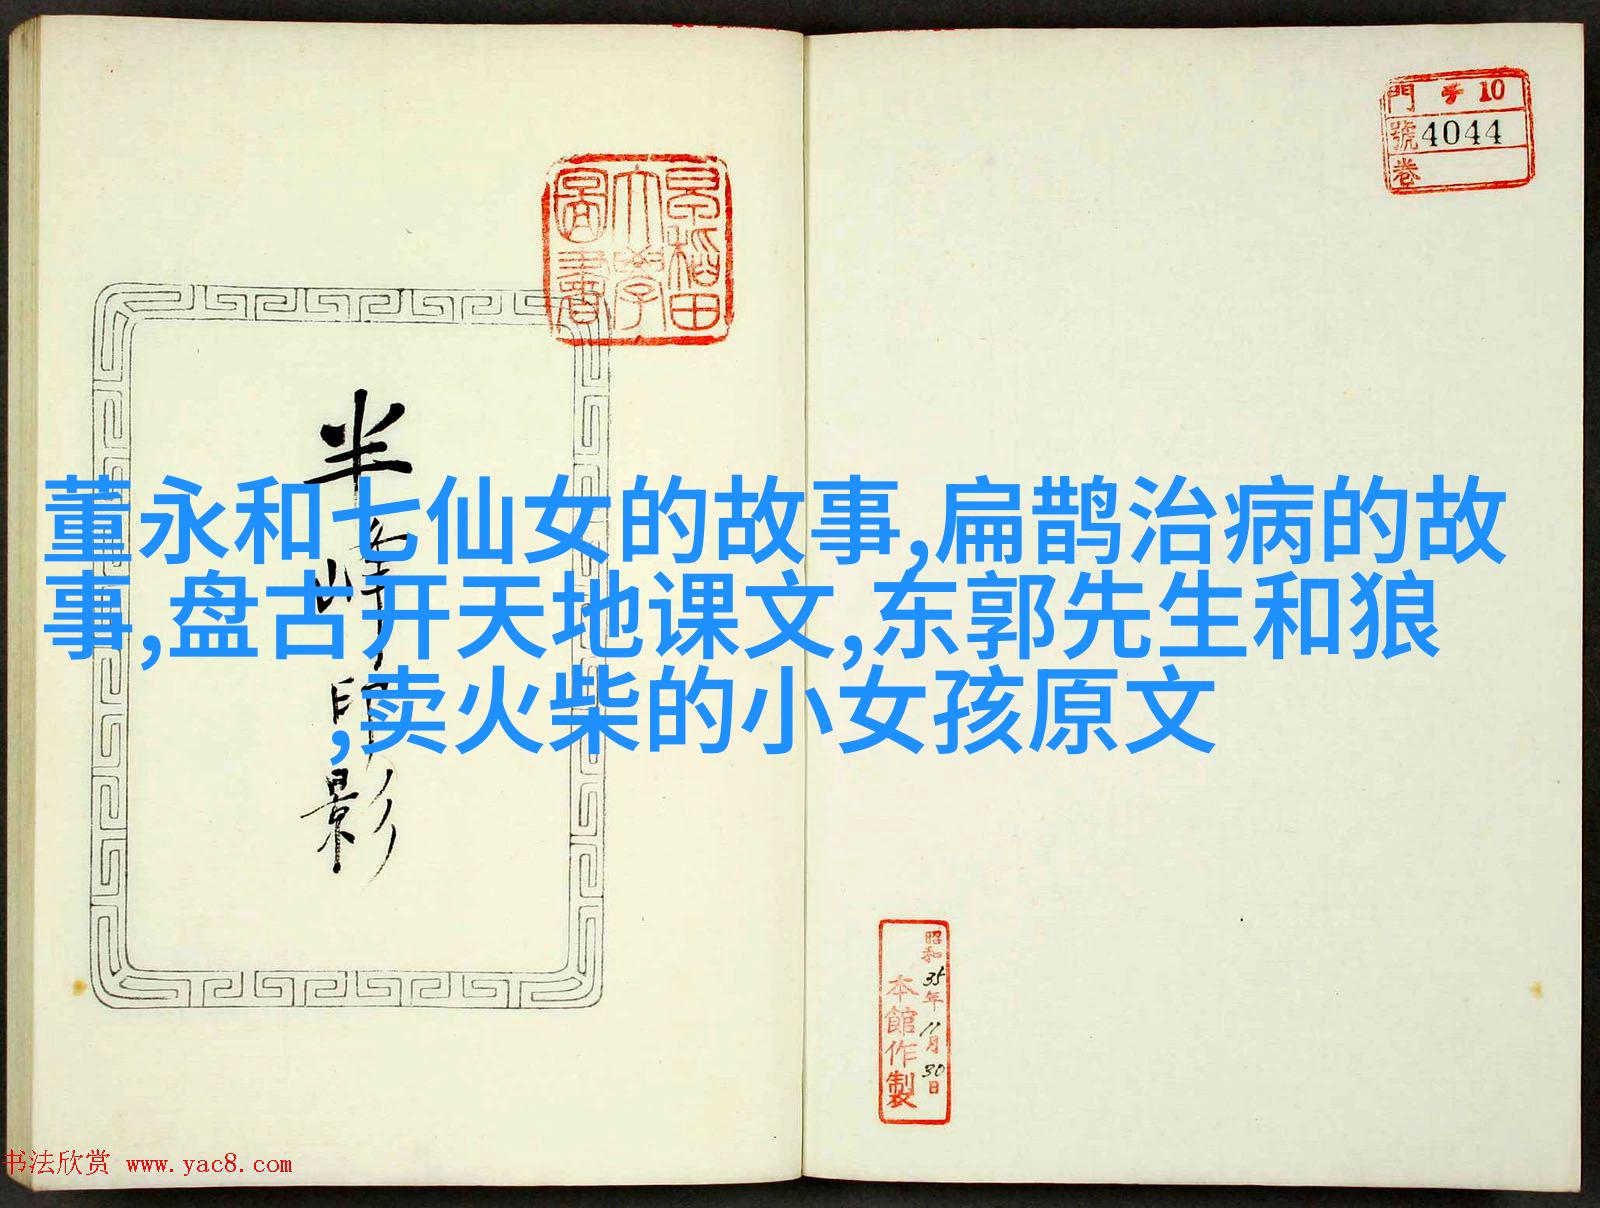 早稲田
大學
圖書
門 チ 10
號 4044
卷
半峰印影
董永和七仙女的故事,扁鹊治病的故
事,盘古开天地课文,东郭先生和狼
,卖火柴的小女孩原文
昭和35年11月30日
本館作製
书法欣赏 www.yac8.com